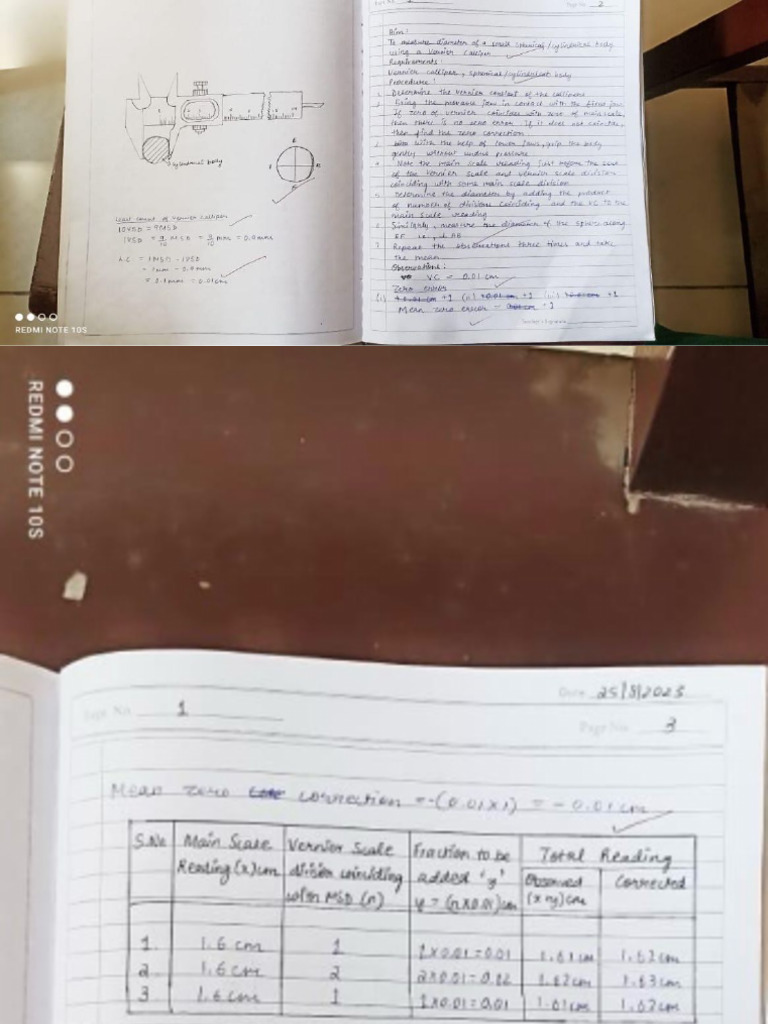 cylindrical body
Least count of Vernier Calliper
10VSD = 9MSD
1VSD = 9/10 MSD = 9/10 mm = 0.9mm
L.C = 1MSD - 1VSD
= 1mm - 0.9mm
= 0.1mm = 0.01cm
REDMI NOTE 10S
Page No. 2
Aim:
To measure diameter of a small spherical/cylindrical body
using a Vernier Calliper
Requirements:
Vernier calliper, spherical/cylindrical body
Procedure:
Determine the vernier constant of the callipers
Bring the movable jaw in contact with the fixed jaw.
If zero of vernier coincides with zero of main scale,
then there is no zero error. If it does not coincide,
then find the zero correction.
With the help of lower jaws, grip the body
gently without undue pressure
Note the main scale reading just before the zero
of the vernier scale and vernier scale division
coinciding with some main scale division
Determine the diameter by adding the product
of number of divisions coinciding and the VC to the
main scale reading
Similarly, measure the diameter of the sphere along
EF
7. Repeat the observations three times and take
the mean
Observations:
VC = 0.01 cm
Zero error
(i) +1 (ii) +1 (iii) +1
Mean zero error = +1
REDMI NOTE 10S
Date 25/8/2023
Page No. 1
Page No. 3
Mean zero correction = -(0.01x1) = -0.01cm
S.No Main Scale Reading (x)cm Vernier Scale division coinciding with MSD (n) Fraction to be added 'y' y = (nx0.01)cm Total Reading
Observed (x+y)cm Corrected
1. 1.6 cm 1 1x0.01=0.01 1.61cm 1.62cm
2 1.6cm 2 2x0.01=0.02 1.62cm 1.63cm
3 1.6cm 1 1x0.01=0.01 1.61cm 1.62cm